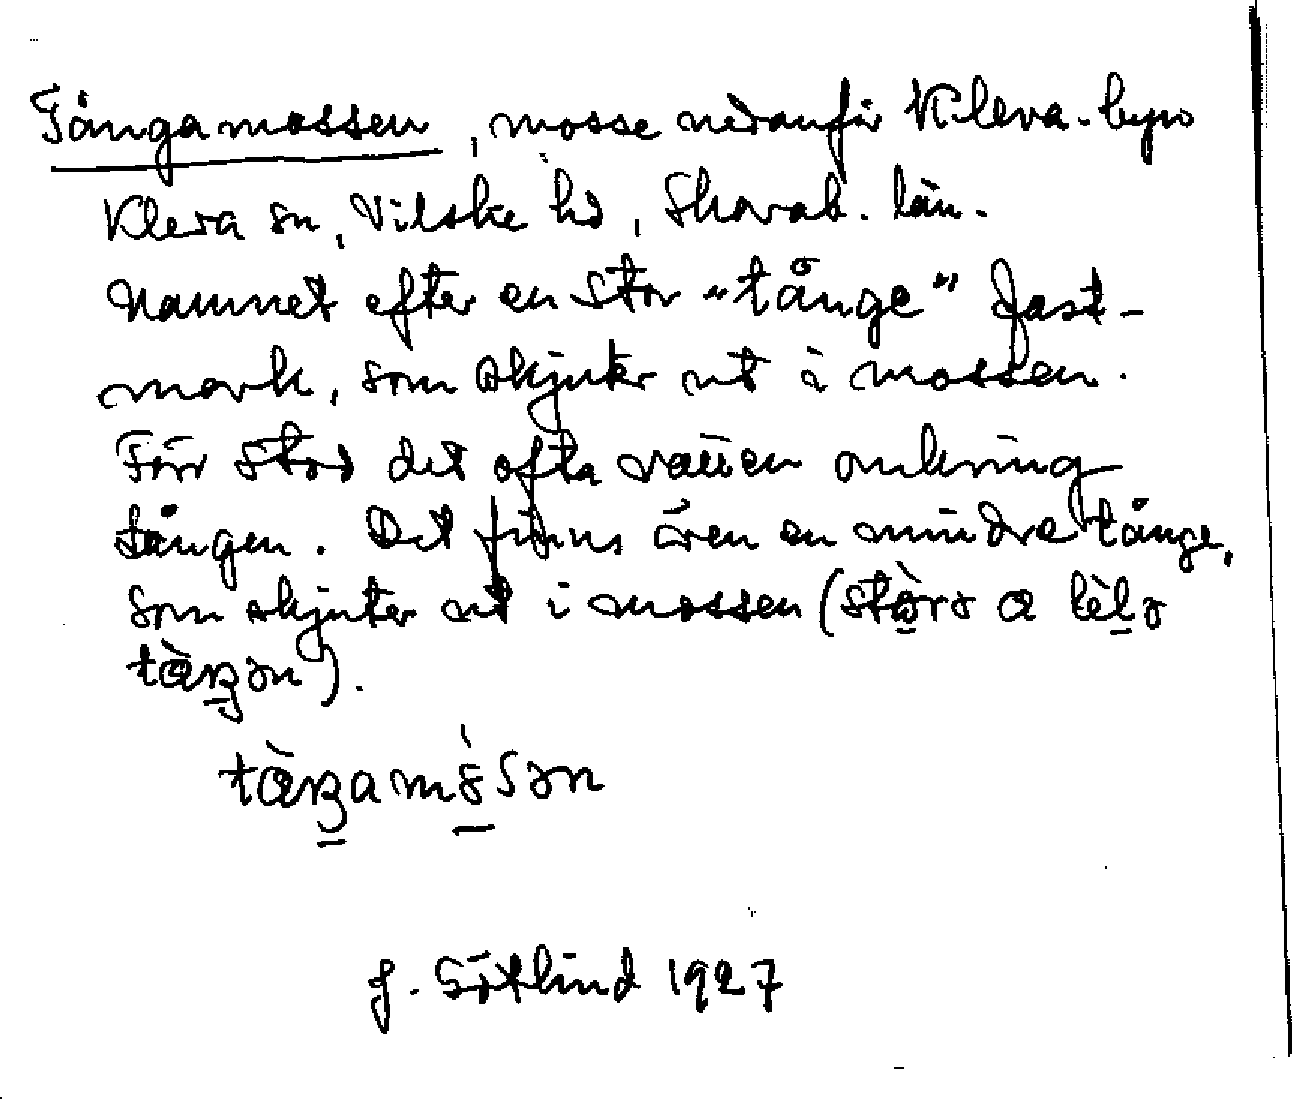 Tångamossen, mosse nedanför Kleva-byn
Kleva sn, Vilske hd, Skarab. län.
Namnet efter en stor "tånge" fast-
mark, som skjuter ut i mossen.
Förr stod det ofta vatten omkring
tången. Det finns även en mindre tånge,
som skjuter ut i mossen (stòrə a lèlə
tàŋən).
tàŋamòsən
G. Götlind 1927